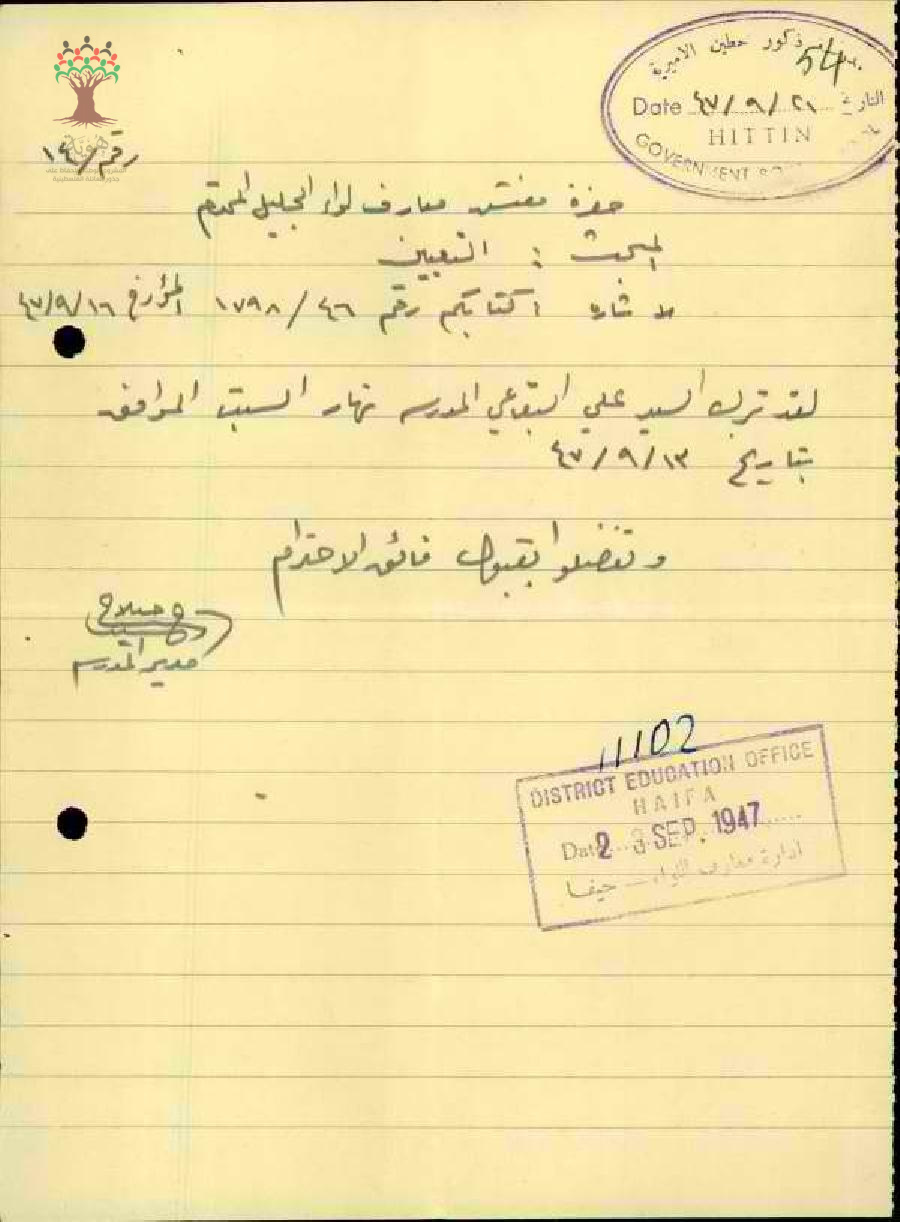 ذكور حطين الاميرية
54
Date ٤٧/٩/٢١ التاريخ
HITTIN
GOVERNMENT
رقم/١٤
حضرة مفتش معارف لواء الجليل المحترم
المبحث : التعيين
الاشارة كتابكم رقم ١٧٩٨/٤٦ المؤرخ ٤٧/٩/١٦
لقد ترك السيد علي البقاعي المدرسه نهار السبت الموافق
بتاريخ ٤٧/٩/١٣
وتفضلوا بقبول فائق الاحترام
صلاح
مدير المدرسه
11102
DISTRICT EDUCATION OFFICE
HAIFA
Date 2 3 SEP. 1947
ادارة معارف اللواء - حيفا